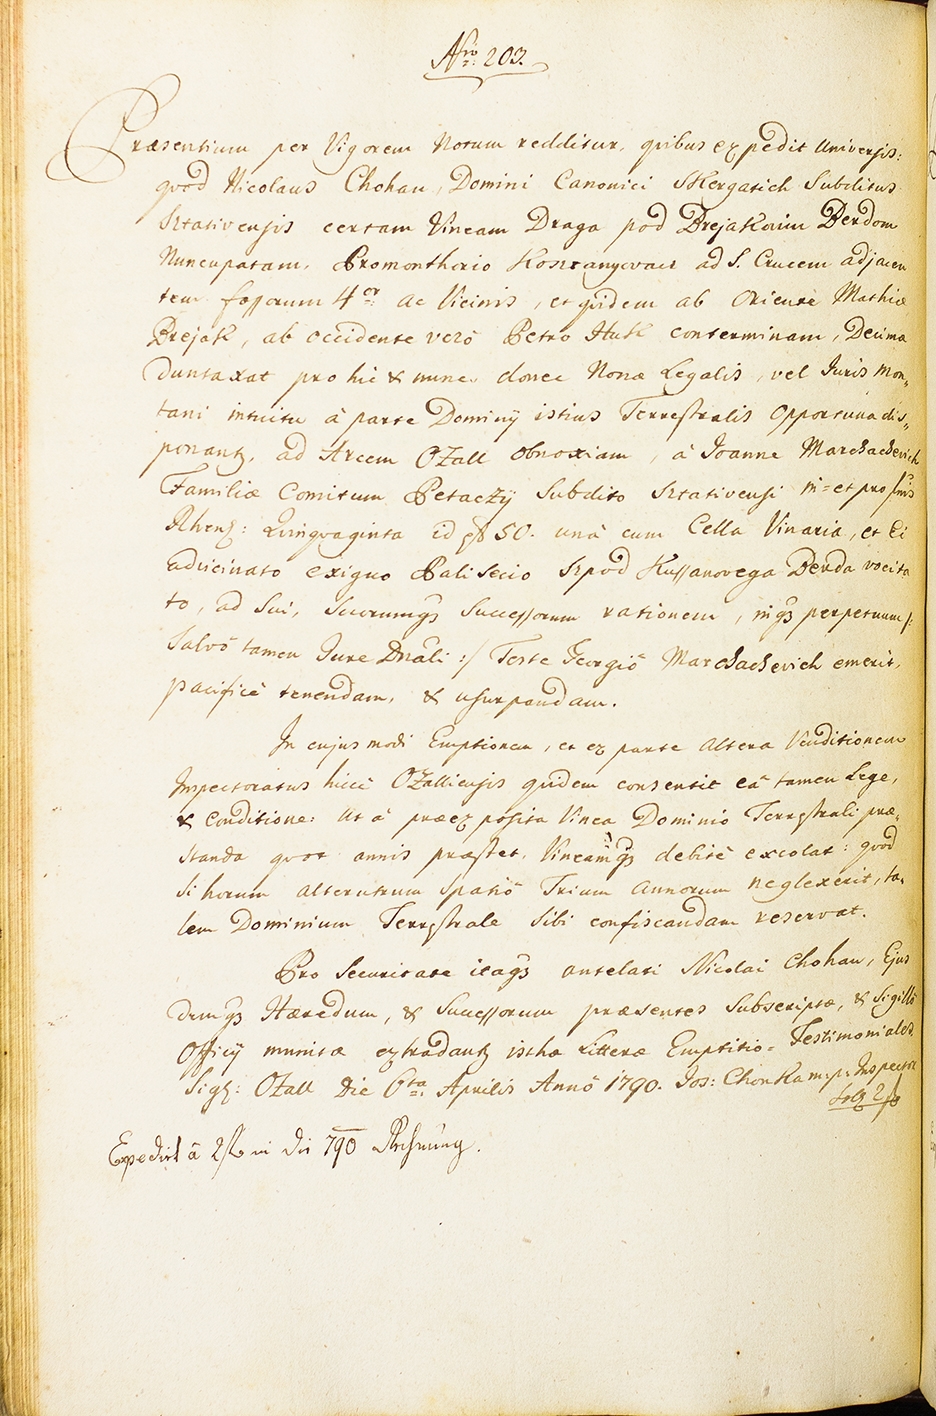 Nro 203.
Præsentium per Vigorem Notum redditur, quibus expedit Universis:
quod Nicolaus Chohan, Domini Canonici Skergatich Subditus
Sztativensis certam Vineam Draga pod Brejakovim Berdom
Nuncupatam, Promonthorio Kosztanyevacz ad S. Crucem adjacen
tem fossorum 4or ac Vicinis, et quidem ab Oriente Mathiæ
Brejak, ab occidente verò Petro Huk conterminam, Decimæ
duntaxat pro hic & nunc, donec Nonæ Legalis, vel Juris Mon„
tani intuitu à parte Dominij istius Terrestralis Opportuna dis„
ponantz, ad Arcem Ozall obnoxiam, à Joanne Marchachevich
Familiæ Comitum Petaczÿ Subdito Sztativensi in= et pro finis
Rhenz: Quinquaginta id est 50. unà cum Cella Vinaria, et Ei
advicinato exiguo Palisecio Szpod Kussanovega Berda vocita
to, ad Sui, Suorumqz Successorum rationem, inqz perpetuum /:
Salvô tamen Jure Dnali :/ Teste Georgiô Marchachevich emerit,
pacificè tenendam, & usurpandam.
In cujusmodi Emptionem, et ex parte altera Venditionem
Inspectoratus hicce Ozalliensis quidem consentit eâ tamen Lege,
& Conditione: Ut à præexposita Vinea Dominio Terrestrali præ„
standa quot annis præstet, Vineamqz debitè excolat: quod
si horum alterutrum Spatiô Trium Annorum neglexerit, ta„
lem Dominium Terrestrale Sibi confiscandam reservat.
Pro Securitate itaqz antelati Nicolai Chohan, Ejus
demqz Hæredum, & Successorum præsentes Subscriptæ, & Sigillô
Officij munitæ extradantz isthæ Litteræ Emptitio= Testimoniales.
Sigz: Ozall Die 6ta Aprilis Annô 1790. Jos: Chonka mp: Inspector
Solz 2 f
Expedirt â 2 f in die 790 Rechnung.